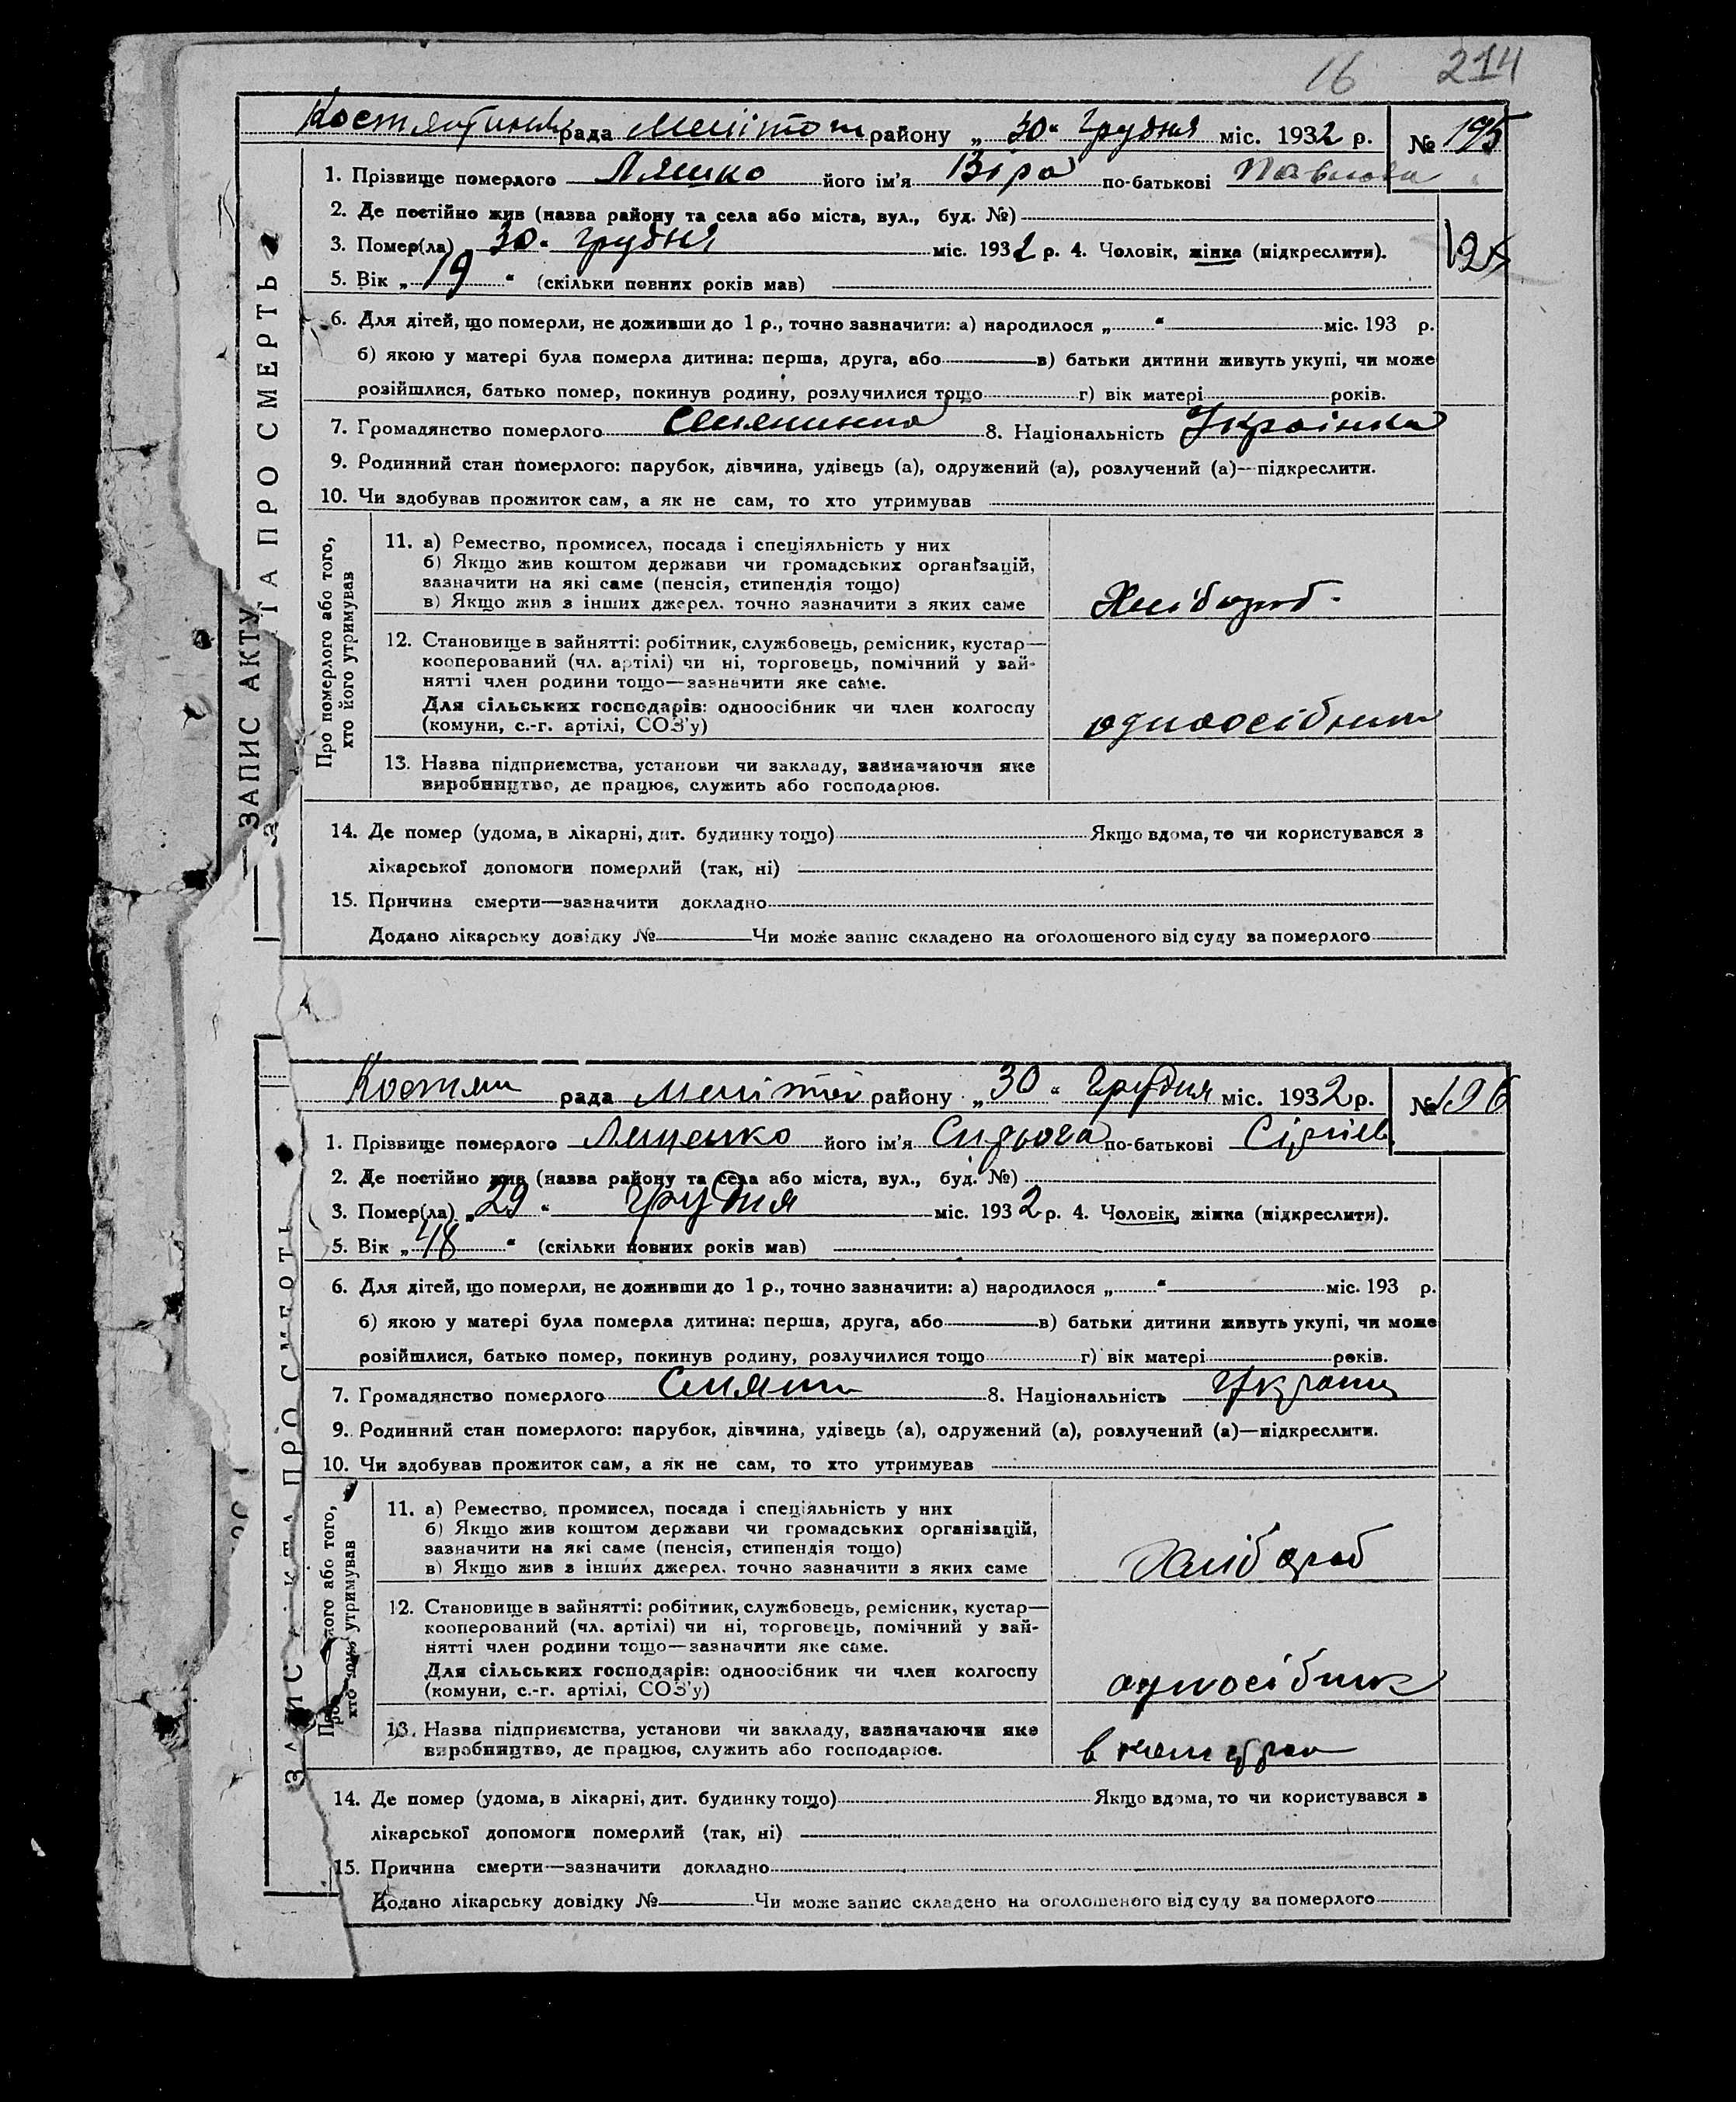 16 214
рада Меліто району „30“ Грудня міс. 1932 р. № 195
1. Прізвище помердого Ляшко його ім'я Віра по-батькові Павлова
2. Де постійно жив (назва району та села або міста, вул., буд. №)
3. Помер(ла) „30“ грудня міс. 1932 р. 4. Чоловік, жінка (підкреслити).
5. Вік „19“ (скільки повних років мав)
6. Для дітей, що померли, не доживши до 1 р., точно зазначити: а) народилося „ “ міс. 193 р.
б) якою у матері була померла дитина: перша, друга, або в) батьки дитини живуть укупі, чи може
розійшлися, батько помер, покинув родину, розлучилися тощо г) вік матері років.
7. Громадянство померлого Селянинка 8. Національність Українка
9. Родинний стан померлого: парубок, дівчина, удівець (а), одружений (а), розлучений (а)—підкреслити.
10. Чи здобував прожиток сам, а як не сам, то хто утримував
Про померлого або того,
хто його утримував
11. а) Ремество, промисел, посада і спеціяльність у них
б) Якщо жив коштом держави чи громадських організацій,
зазначити на які саме (пенсія, стипендія тощо)
в) Якщо жив з інших джерел. точно зазначити з яких саме
Хлібороб.
12. Становище в зайнятті: робітник, службовець, ремісник, кустар—
кооперований (чл. артілі) чи ні, торговець, помічний у зай-
нятті член родини тощо—зазначити яке саме.
Для сільських господарів: одноосібник чи член колгоспу
(комуни, с.-г. артілі, СОЗ'у)
одноосібник
13. Назва підприємства, установи чи закладу, зазначаючи яке
виробництво, де працює, служить або господарює.
14. Де помер (удома, в лікарні, дит. будинку тощо) Якщо вдома, то чи користувався з
лікарської допомоги померлий (так, ні)
15. Причина смерти—зазначити докладно
Додано лікарську довідку № Чи може запис складено на оголошеного від суду за померлого
ЗАПИС АКТУ
ТА ПРО СМЕРТЬ
Костян рада Меліто району „30“ Грудня міс. 1932 р. № 196
1. Прізвище померлого Лященко його ім'я Сидьога по-батькові Сіргіев
2. Де постійно жив (назва району та села або міста, вул., буд. №)
3. Помер(ла) „29“ грудня міс. 1932 р. 4. Чоловік, жінка (підкреслити).
5. Вік „48“ (скільки повних років мав)
6. Для дітей, що померли, не доживши до 1 р., точно зазначити: а) народилося „ “ міс. 193 р.
б) якою у матері була померла дитина: перша, друга, або в) батьки дитини живуть укупі, чи може
розійшлися, батько помер, покинув родину, розлучилися тощо г) вік матері років.
7. Громадянство померлого Селянин 8. Національність Україне
9. Родинний стан померлого: парубок, дівчина, удівець (а), одружений (а), розлучений (а)—підкреслити.
10. Чи здобував прожиток сам, а як не сам, то хто утримував
11. а) Ремество, промисел, посада і спеціяльність у них
б) Якщо жив коштом держави чи громадських організацій,
зазначити на які саме (пенсія, стипендія тощо)
в) Якщо жив з інших джерел. точно зазначити з яких саме
хлібороб
12. Становище в зайнятті: робітник, службовець, ремісник, кустар—
кооперований (чл. артілі) чи ні, торговець, помічний у зай-
нятті член родини тощо—зазначити яке саме.
Для сільських господарів: одноосібник чи член колгоспу
(комуни, с.-г. артілі, СОЗ'у)
одноосібник
13. Назва підприємства, установи чи закладу, зазначаючи яке
виробництво, де працює, служить або господарює.
14. Де помер (удома, в лікарні, дит. будинку тощо) Якщо вдома, то чи користувався з
лікарської допомоги померлий (так, ні)
15. Причина смерти—зазначити докладно
Додано лікарську довідку № Чи може запис складено на оголошеного від суду за померлого